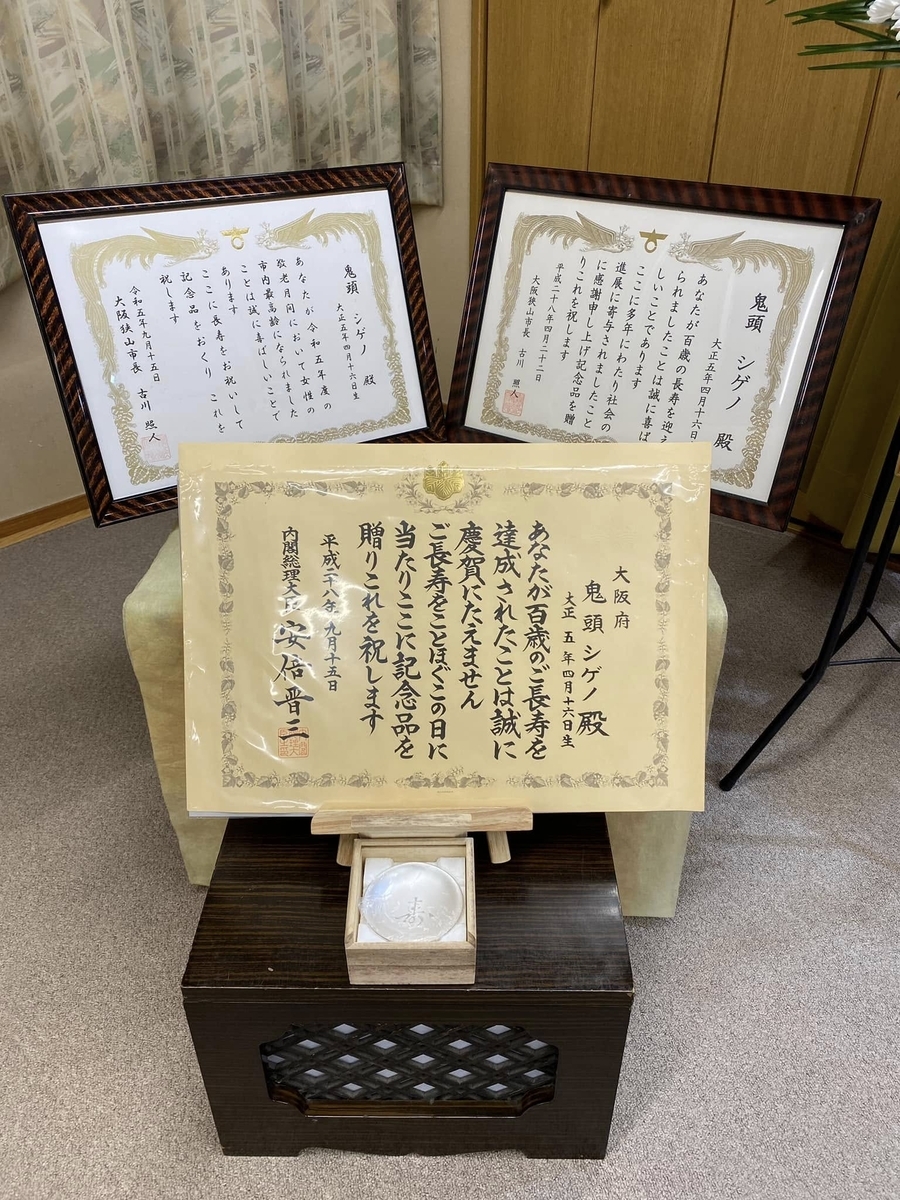 鬼頭 シゲノ 殿
大正五年四月十六日生
あなたが令和五年度の
敬老月間において女性の
市内最高齢になられました
ことは誠に喜ばしいことで
あります
ここに長寿をお祝いして
記念品をおくり これを
祝します
令和五年九月十五日
大阪狭山市長 古川 照人
鬼頭 シゲノ 殿
大正五年四月十六日
あなたが百歳の長寿を迎え
られましたことは誠に喜ば
しいことであります
ここに多年にわたり社会の
進展に寄与されましたこと
に感謝申し上げ記念品を贈
りこれを祝します
平成二十八年四月二十二日
大阪狭山市長 古川 照人
大阪府
鬼頭 シゲノ 殿
大正 五 年四月十六日生
あなたが百歳のご長寿を
達成されたことは誠に
慶賀にたえません
ご長寿をことほぐこの日に
当たりここに記念品を
贈りこれを祝します
平成二十八年九月十五日
内閣総理大臣 安倍晋三
寿